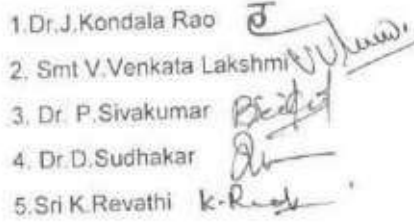 1.Dr.J.Kondala Rao
2. Smt V.Venkata Lakshmi
3. Dr. P.Sivakumar
4. Dr.D.Sudhakar
5.Sri K.Revathi K-R